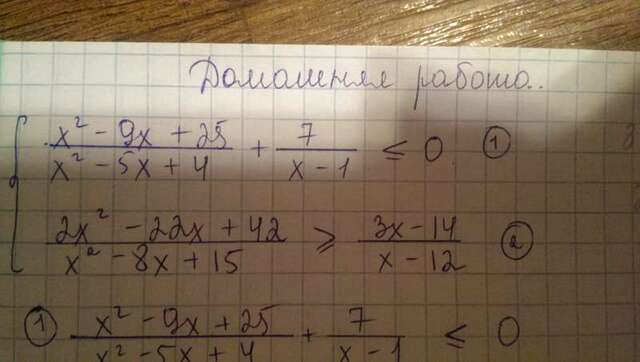 Домашняя работа.
{ (x² - 9x + 25)/(x² - 5x + 4) + 7/(x - 1) ≤ 0 ①
(2x² - 22x + 42)/(x² - 8x + 15) ⩾ (3x - 14)/(x - 12) ②
① (x² - 9x + 25)/(x² - 5x + 4) + 7/(x - 1) ≤ 0